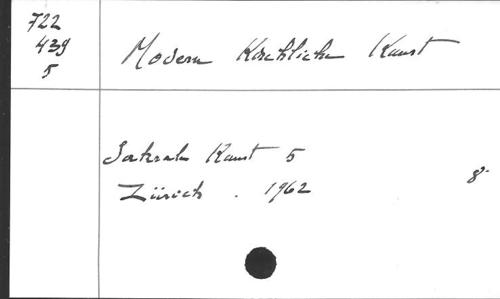 722
439
5
Modern Kirchliche Kunst
Sakrale Kunst 5
Zürich . 1962
8°